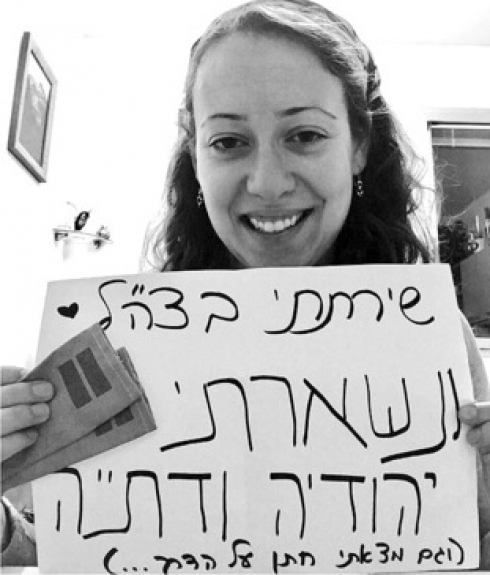 שירתתי בצה"ל
ונשארתי
יהודיה ודת"ה
(וגם מצאתי חתן על הדרך...)